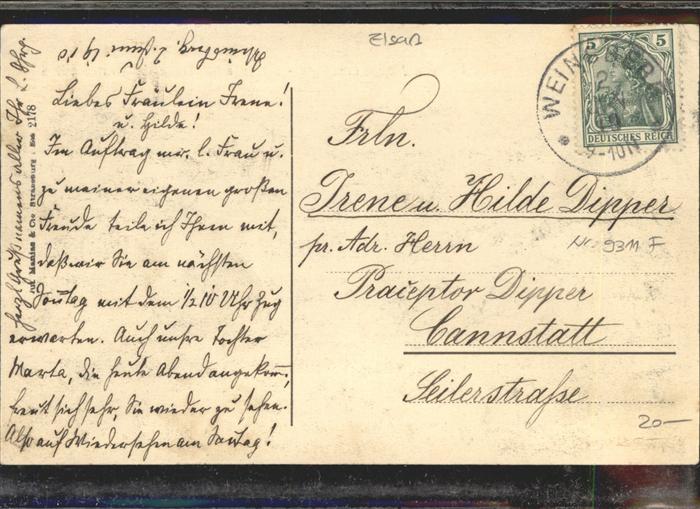 Weinsberg, 2. Juni 1910
Liebes Fräulein Irene!
u. Hilde!
Im Auftrag mr. l. Frau u.
zu meiner eigenen großen
Freude teile ich Ihnen mit,
daß wir Sie am nächsten
Sonntag mit dem 1/2 10 Uhr Zug
erwarten. Auch unsre Tochter
Marta, die heute Abend angekom̄,
freut sich sehr, Sie wieder zu sehen.
Also auf Wiedersehen am Sonntag!
Herzl. Gruß namens aller Ihr L.
Manias & Cie Strassburg 2178
Elsaß
5 5
DEUTSCHES REICH
WEINSBERG
Frln.
Irene u. Hilde Dipper
pr. Adr. Herrn
Nr. 9311 F
Präceptor Dipper
Cannstatt
Seilerstraße
20-